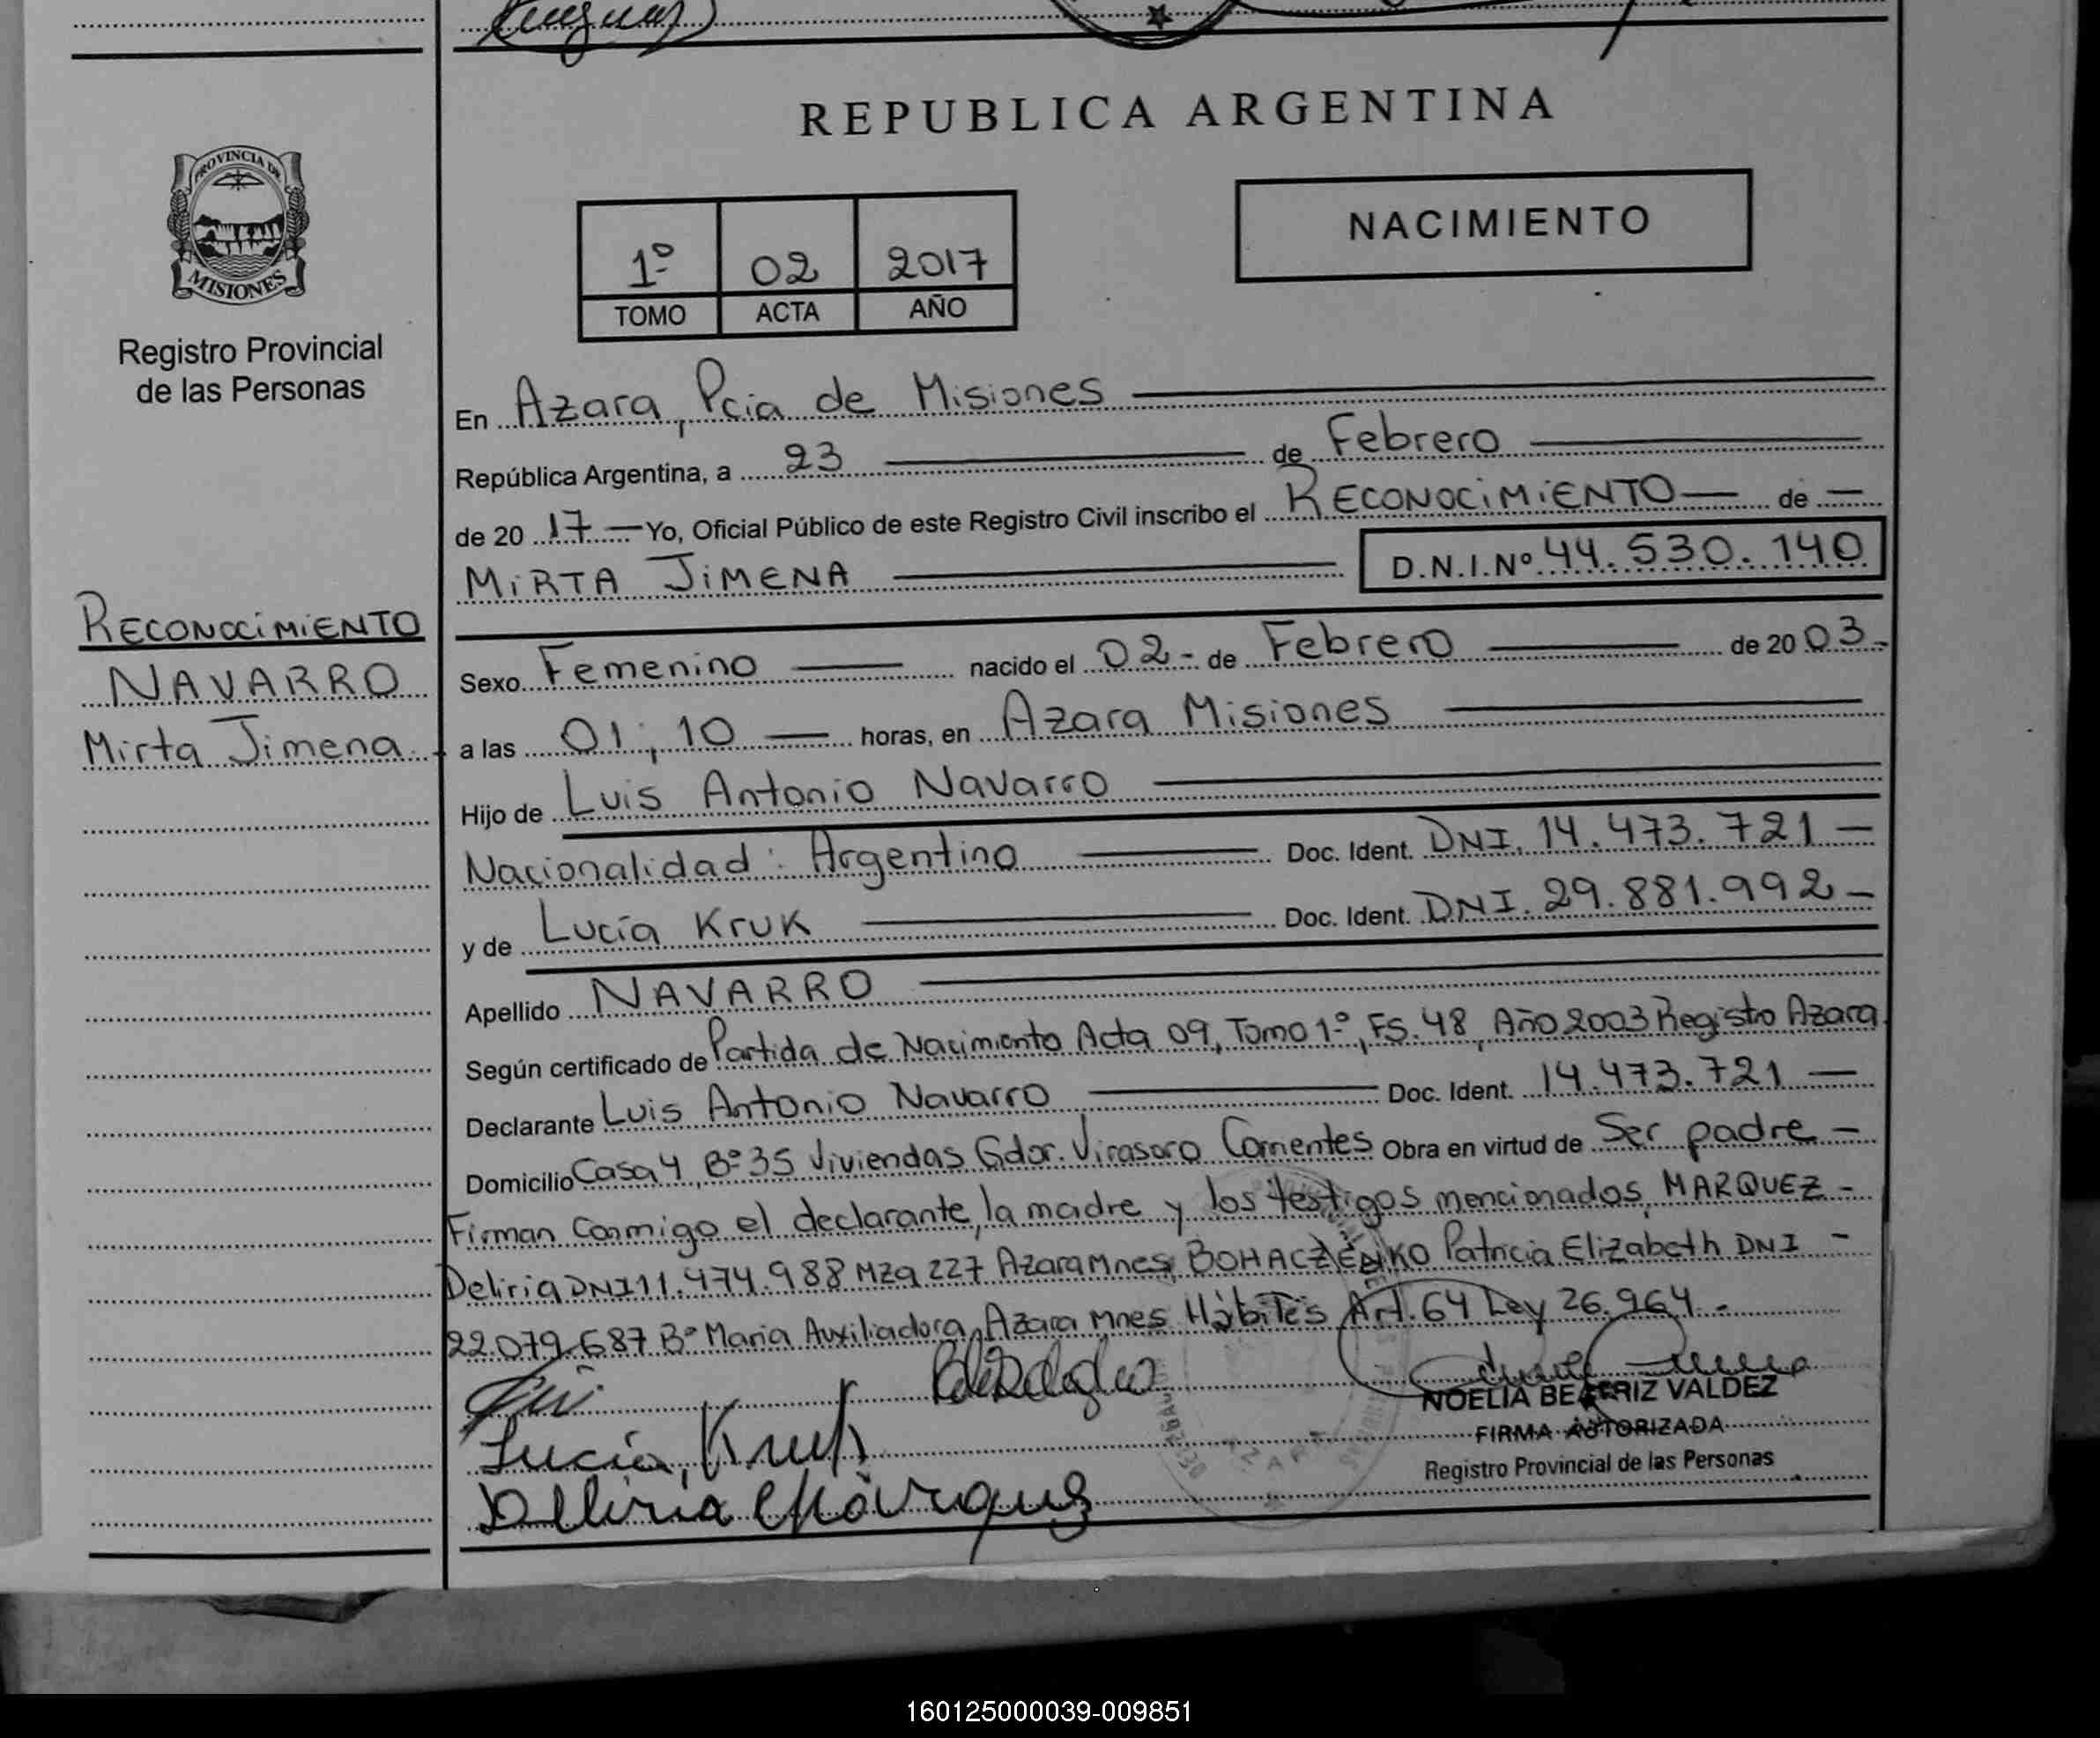 REPUBLICA ARGENTINA
PROVINCIA DE
MISIONES
Registro Provincial
de las Personas
RECONOCIMIENTO
NAVARRO
Mirta Jimena
1º 02 2017
TOMO ACTA AÑO
NACIMIENTO
En Azara, Pcia de Misiones
República Argentina, a 23 de Febrero
de 20 17 Yo, Oficial Público de este Registro Civil inscribo el RECONOCIMIENTO de
MIRTA JIMENA D.N.I.Nº 44.530.140
Sexo Femenino nacido el 02 - de Febrero de 20 03.-
a las 01,10 horas, en Azara Misiones
Hijo de Luis Antonio Navarro
Nacionalidad: Argentino Doc. Ident. DNI. 14.473.721
y de Lucía Kruk Doc. Ident. DNI. 29.881.992
Apellido NAVARRO
Según certificado de Partida de Nacimiento Acta 09, Tomo 1º, FS. 48, Año 2003 Registo Azara
Declarante Luis Antonio Navarro Doc. Ident. 14.473.721
Domicilio Casa 4, Bº 35 Viviendas Gdor. Virasoro Corrientes Obra en virtud de Ser padre -
Firman Conmigo el declarante, la madre y los testigos mencionados, MARQUEZ -
Deliria DNI 11.474.988 Mza 227 Azara Mnes, BOHACZENKO Patricia Elizabeth DNI -
22.079.687 Bº Maria Auxiliadora, Azara Mnes Hábiles Art. 64 Ley 26.964.-
Lucía, Kruk
Deliria Márquez
NOELIA BEATRIZ VALDEZ
FIRMA AUTORIZADA
Registro Provincial de las Personas
160125000039-009851